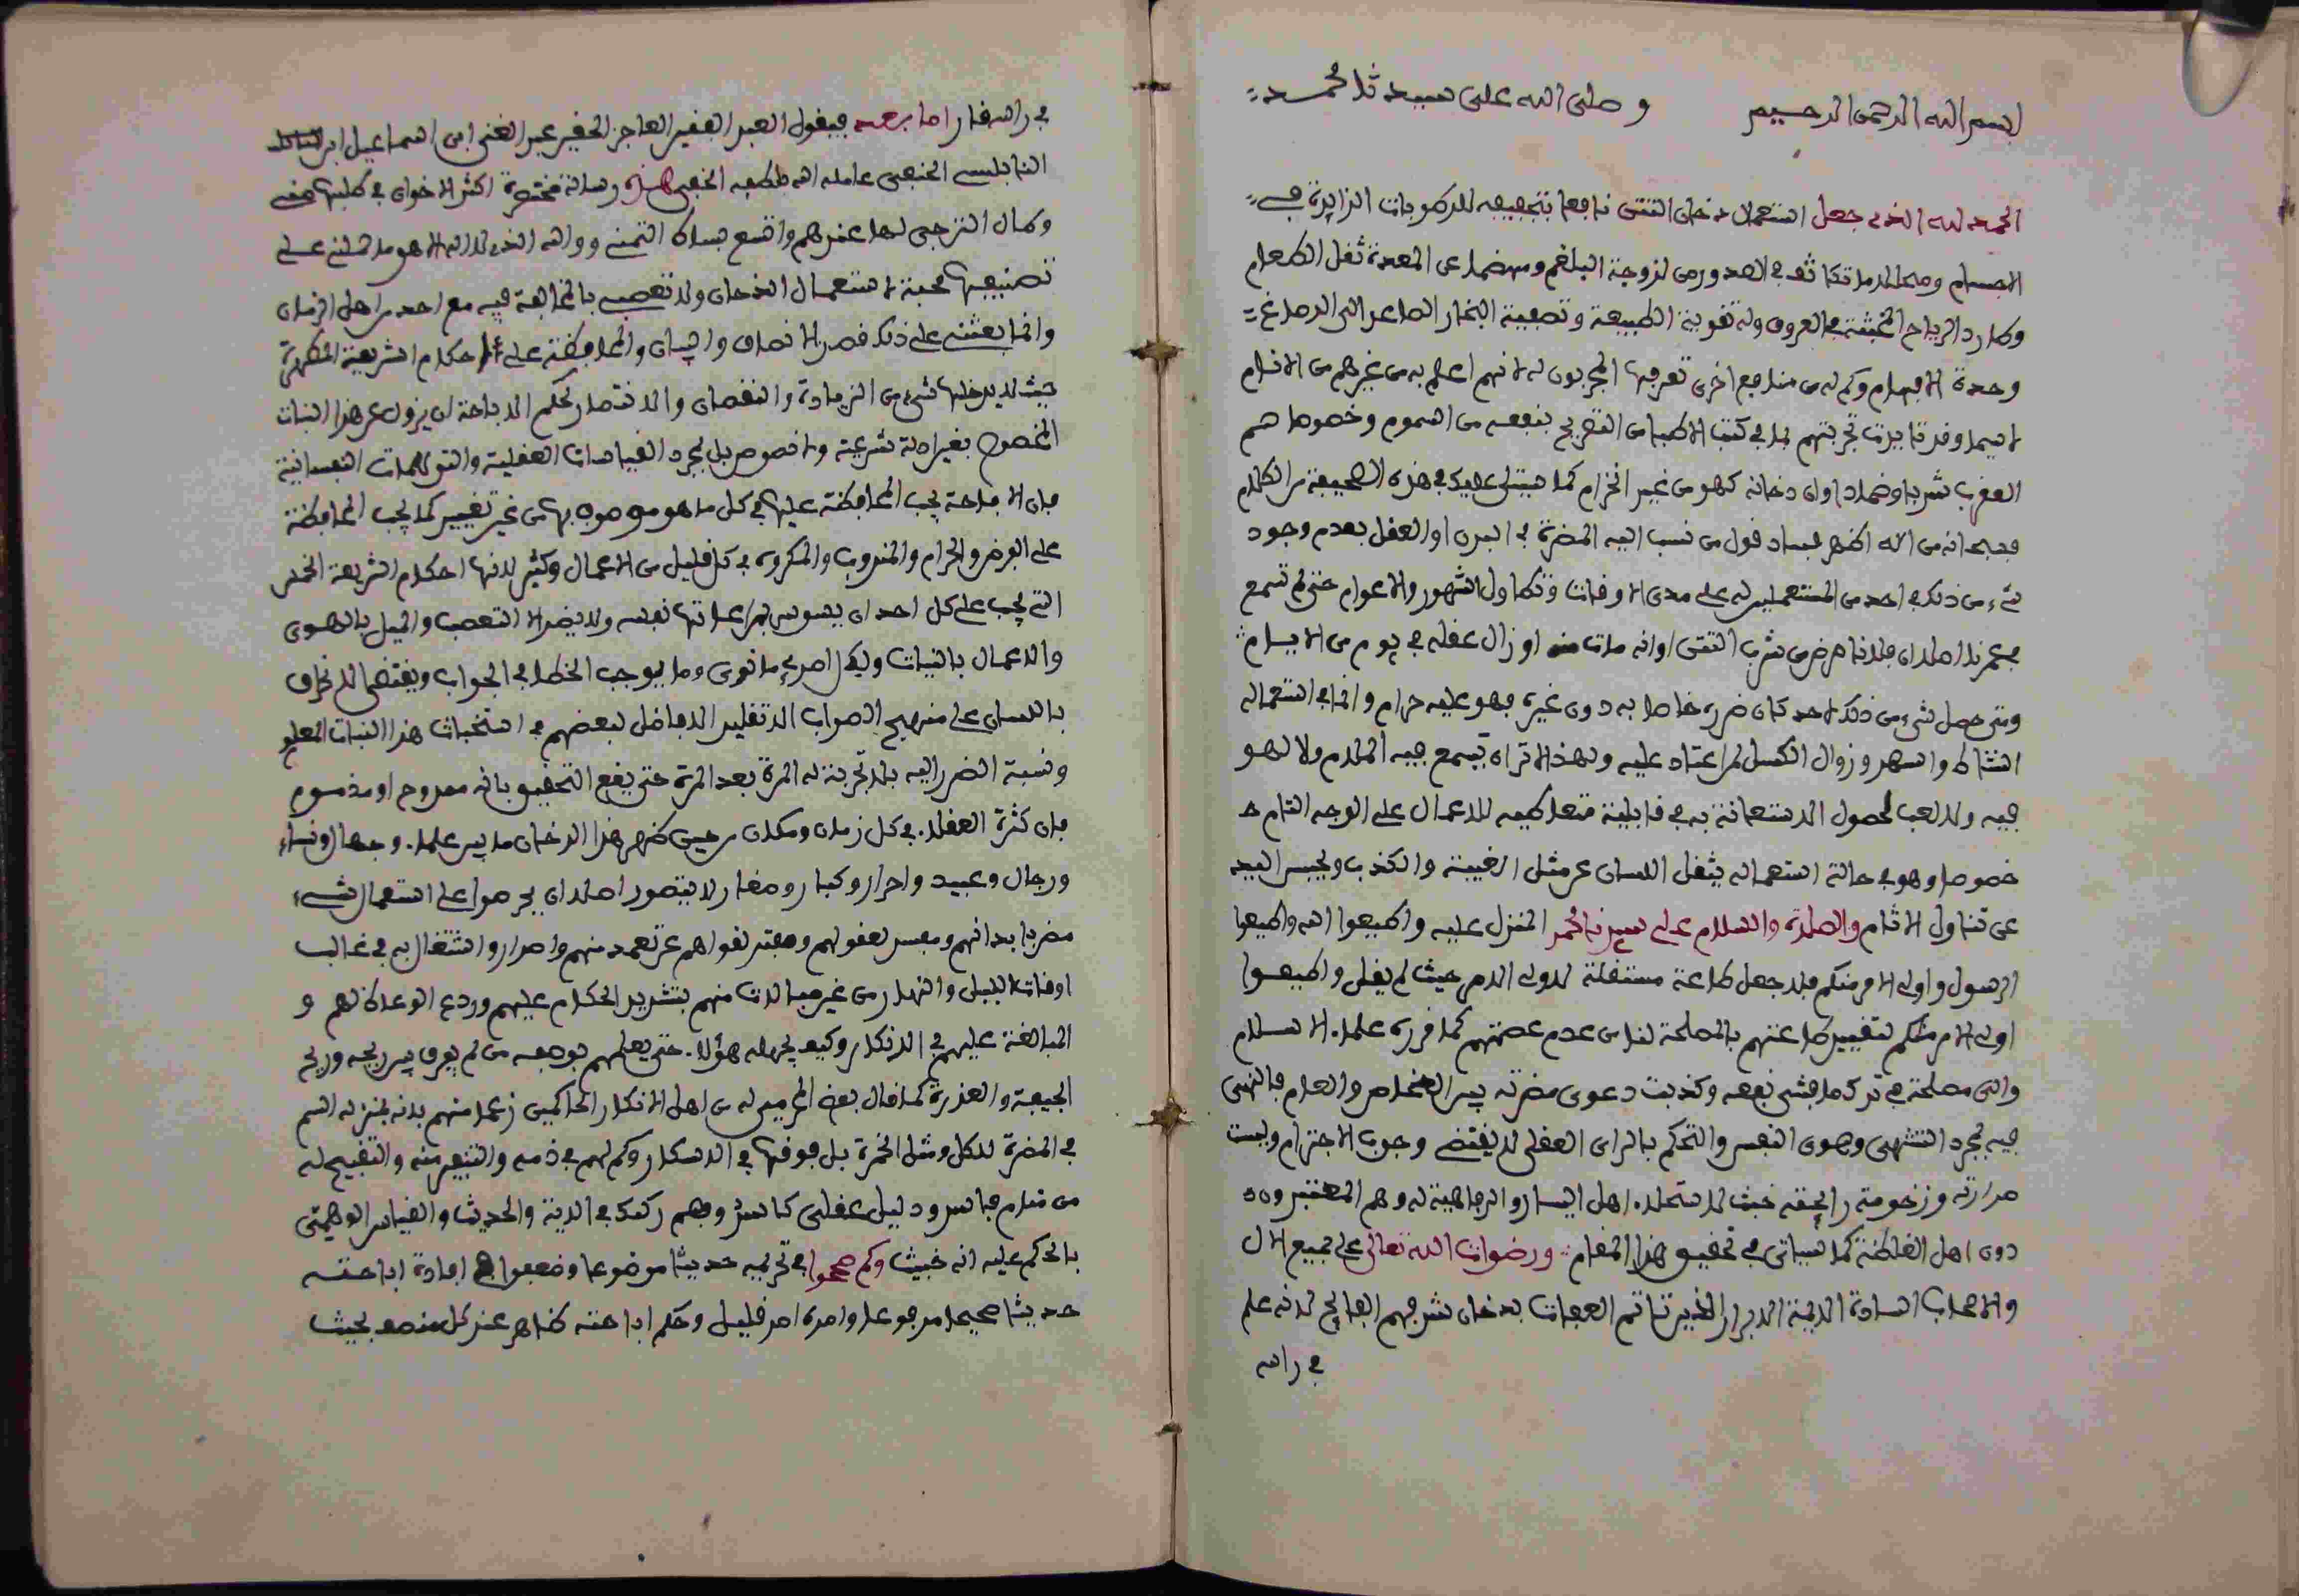 بسم الله الرحمن الرحيم وصلى الله على سيدنا محمد
الحمد لله الذي جعل استعمال دخان التتن نافعا بتجفيفه للرطوبات الزايدة في
الاجسام ومحللا لما تكاثف في الصدور من لزوجة البلغم ومهضما عن المعدة ثفل الطعام
وطارد الرياح المخبثة في العروق وله تقوية الطبيعة وتصفية البخار الصاعد الى الدماغ
وحدة الافهام وكم له من منافع اخرى تعرفها المجربون له لانهم اعلم به من غيرهم من الانام
لا سيما وقد تايدت تجربتهم بما في كتب الاطبا من التصريح بنفعه من السموم وخصوصا سم
العقرب شربا وضمادا وان دخانه طهو من غير اخترام كما سيتلى عليك في هذه الصحيفة من الكلام
فسبحانه من اله اظهر فساد قول من نسب اليه المضرة في البدن او العقل بعدم وجود
شيء من ذلك في احد من المستعملين له على مدى الاوقات وتطاول الشهور والاعوام حتى لم نسمع
في عمرنا اصلا ان فلانا مرض من شرب التتن او انه مات منه او زال عقله في يوم من الايام
ومتى حصل شيء من ذلك لاحد كان ضرره خاصا به دون غيره فهو عليه حرام وانما في استعماله
النشاط والسهر وزوال الكسل لمن اعتاد عليه ولهذا لا تراه يسمع فيه الملام ولا لهو
فيه ولا لعب لحصول الاستعانة به في قابلية متعاطيه للاعمال على الوجه التام
خصوصا وهو في حالة استعماله يثقل اللسان عن مثل الغيبة والكذب ويحبس اليد
عن تناول الاثام والصلاة والسلام على سيدنا محمد المنزل عليه واطيعوا الله واطيعوا
الرسول واولي الامر منكم فلا جعل طاعة مستقلة لاولي الامر حيث لم يقل واطيعوا
اولي الامر منكم لتقييد طاعتهم بالمصلحة لنا من عدم عصمتهم كما قرره علماء الاسلام
واى مصلحة في ترك ما فشى نفعه وكذبت دعوى مضرته بين الخاص والعام فالنهي
فيه بمجرد التشهى وهوى النفس والتحكم بالراى العقلي لا يقتضي وجوب الاحترام وليست
مرارته وزخومة رايحته خبث لاستحلاء اهل اليسار والرفاهية له وهم المعتبرون
دون اهل الغلظة كما سياتى في تحقيق هذا المقام ورضوان الله تعالى على جميع الال
والاصحاب السادة الايمة الابرار الذين تاتم العفاة بدخان شرفهم الفايح لانه علم
في راسه
في راسه نار اما بعد فيقول العبد الفقير العاجز الحقير عبد الغنى ابن اسماعيل ابن
النابلسى الحنفي عامله الله بلطفه الخفي هذه رسالة مختصرة اكثر الاخوان في طلبها منى
وكمال الترجي لها عندهم واتسع بساط التمنى ووالله الذي لا اله الا هو ما حملني على
تصنيفها محبة لاستعمال الدخان ولا تعصب بالمخالفة فيه مع احد من اهل الزمان
وانما بعثني على ذلك قصد الانصاف والبيان والمحافظة على احكام الشريعة المطهرة
حيث لا يدخلها شيء من الزيادة والنقصان والانتصار لحكم الاباحة ان يزول عن هذا النبات
المخصوص بغير ادلة شرعية ولا نصوص بل بمجرد القياسات العقلية والتوهمات النفسانية
فان الاباحة يجب المحافظة عليها في كل ما هو موصوف بها من غير تغيير كما يجب المحافظة
على الفرض والحرام والمندوب والمكروه في كل قليل من الاعمال وكثير لانها احكام الشريعة الخمس
التى يجب على كل احد ان يسوس بمراعاتها نفسه ولا يضر الا التعصب والميل بالهوى
والاعمال بالنيات ولكل امرئ ما نوى وما يوجب الخطا في الجواب ويقتضى الانحراف
باللسان على منهج الصواب الا تقليد الافاضل لبعضهم في استخباث هذا النبات المعلوم
ونسبة الضرر اليه بلا تجربة له المرة بعد المرة حتى يقع التحقيق بانه ممدوح او مذموم
فان كثرة العقلاء في كل زمان ومكان من حين ظهر هذا الدخان ما بين علماء وجهال ونساء
ورجال وعبيد واحرار وكبار وصغار لا يتصور اصلا ان يحرصوا على استعمال شيء
مضر بابدانهم ومفسد لعقولهم ومفتر لقواهم عن تعمد منهم واصرار واشتغال به في غالب
اوقات الليل والنهار من غير مبالات منهم بتشديد الحكام عليهم وردع الوعاظ لهم و
المبالغة عليهم في الانكار وكيف يجهله هؤلاء حتى يعلمهم بوصفه من لم يعرف بين ريحه وريح
الجيفة والعذرة كما قال بعض المحرمين له من اهل الانكار الحاكمين زعما منهم بانه بمنزلة السم
في المضرة للكل ومثل الخمرة بل فوقها في الاسكار وكم لهم في ذمه والتنفير منه والتقبيح له
من منام فاسد ودليل عقلى كاسد وفهم ركيك في الاية والحديث والقياس الوهمى
بالحكم عليه انه خبيث وكم صححوا في تحريمه حديثا موضوعا وضعفوا في افادة اباحته
حديثا صحيحا مرفوعا وامره امر قليل وحكم اباحته ظاهر عند كل منصف بحيث